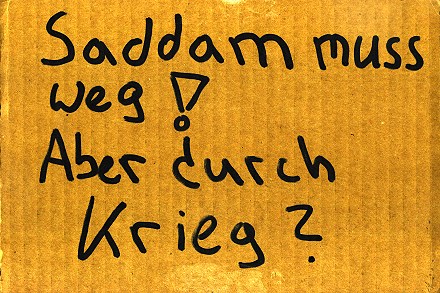 Saddam muss
weg!
Aber durch
Krieg?